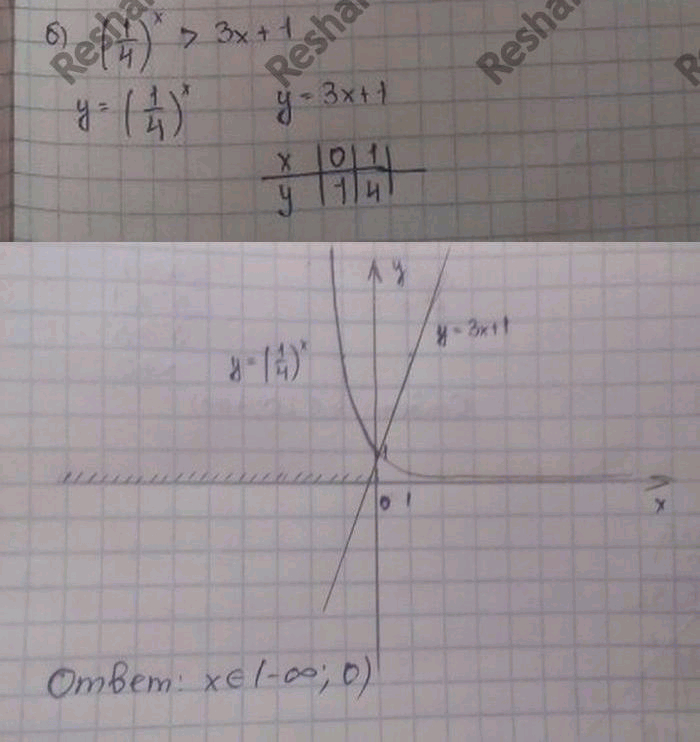 б) (1/4)^x > 3x + 1
y = (1/4)^x y = 3x + 1
x | 0 | 1 |
y | 1 | 4 |
y
y = 3x + 1
y = (1/4)^x
1
0 1
x
Ответ: x ∈ (-∞; 0)